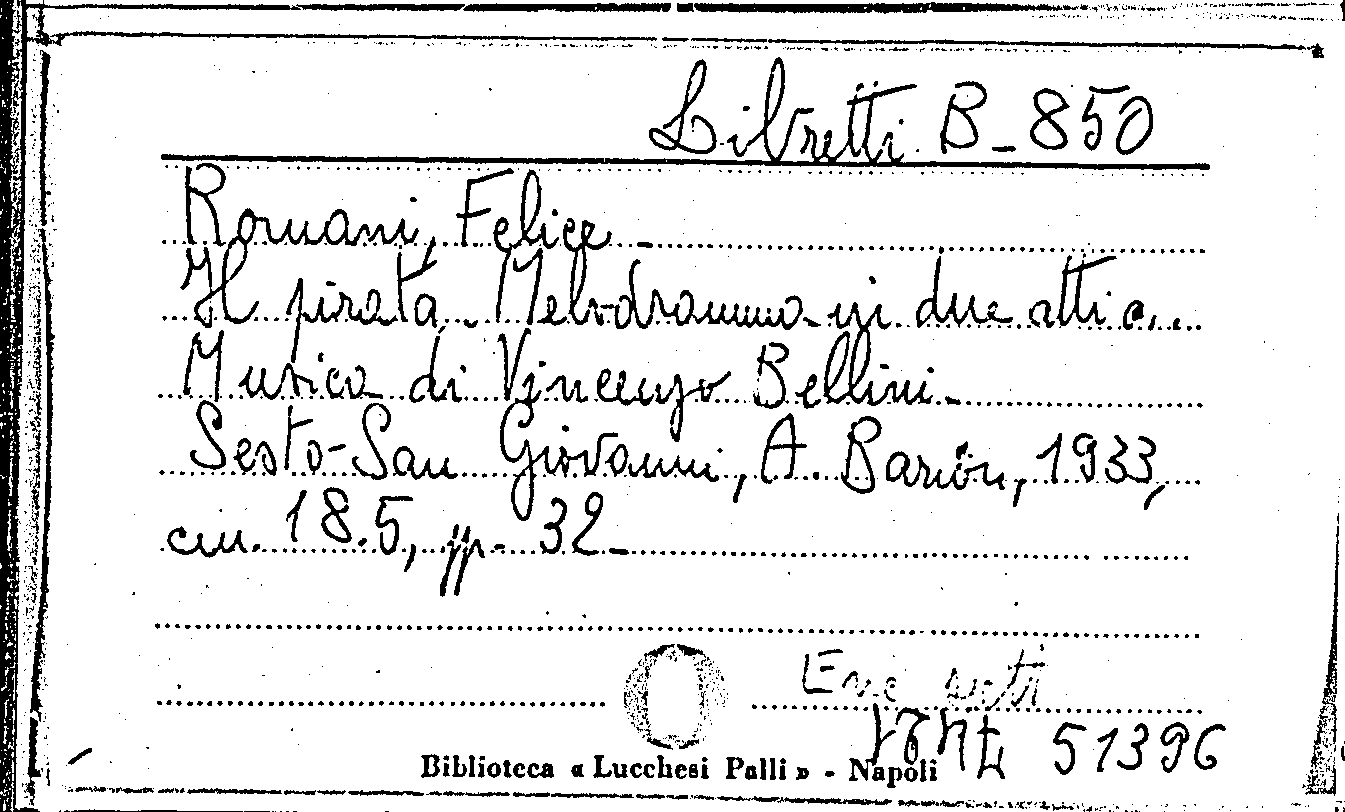 Libretti B-850
Romani, Felice -
Il pirata. Melodramma in due atti a...
Musica di Vincenzo Bellini -
Sesto-San Giovanni, A. Barion, 1933,
cm. 18.5, pp. 32 -
51396
Biblioteca « Lucchesi Palli » - Napoli